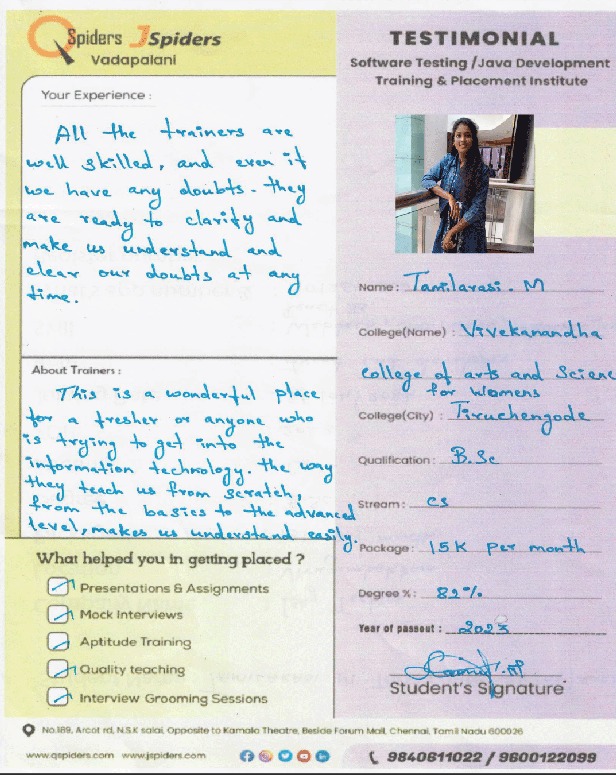 QSpiders JSpiders
Vadapalani
Your Experience :
All the trainers are
well skilled, and even if
we have any doubts. they
are ready to clarify and
make us understand and
clear our doubts at any
time.
About Trainers :
This is a wonderful place
for a fresher or anyone who
is trying to get into the
information technology. the way
they teach us from scratch,
from the basics to the advanced
level, makes us understand easily.
What helped you in getting placed ?
Presentations & Assignments
Mock Interviews
Aptitude Training
Quality teaching
Interview Grooming Sessions
TESTIMONIAL
Software Testing /Java Development
Training & Placement Institute
Name : Tamilarasi. M
College(Name) : Vivekanandha
College of arts and Science
for Womens
College(City) : Tiruchengode
Qualification : B.Sc
Stream : CS
Package : 15K per month
Degree % : 82%
Year of passout : 2023
Student's Signature
No.189, Arcot rd, N.S.K salai, Opposite to Kamala Theatre, Beside Forum Mall, Chennai, Tamil Nadu 600026
www.qspiders.com www.jspiders.com
9840611022 / 9600122099